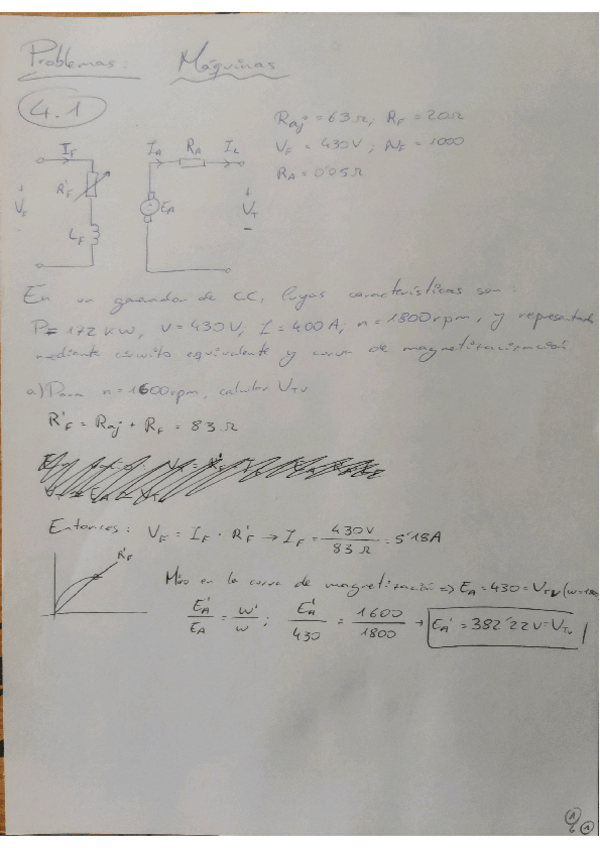 Problemas: Máquinas
4.1
Raj = 63Ω, RF = 20Ω
VF = 430V ; NF = 1000
RA = 0'05Ω
IF IA RA IL
R'F
VF EA VT
LF
En un generador de CC, cuyas características son:
P = 172 KW, V = 430V; I = 400A; n = 1800rpm, y representado
mediante circuito equivalente y curva de
a) Para n = 1600rpm, calcular VTV
R'F = Raj + RF = 83 Ω
Entonces: VF = IF · R'F → IF = 430V / 83 Ω = 5'18A
R'F
en la curva de magnetización ⇒ EA = 430 = VTV
E'A / EA = W' / W ; E'A / 430 = 1600 / 1800 → EA' = 382'22V = VTV